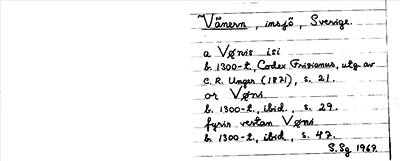 Vänern, insjö, Sverige.
a Vønis isi
b. 1300-t., Codex Frisianus, utg. av
C. R. Unger (1871), s. 21.
or Vøni
b. 1300-t., ibid., s. 29.
fyrir vestan Vøni
b. 1300-t., ibid., s. 47.
S. Sg 1967.